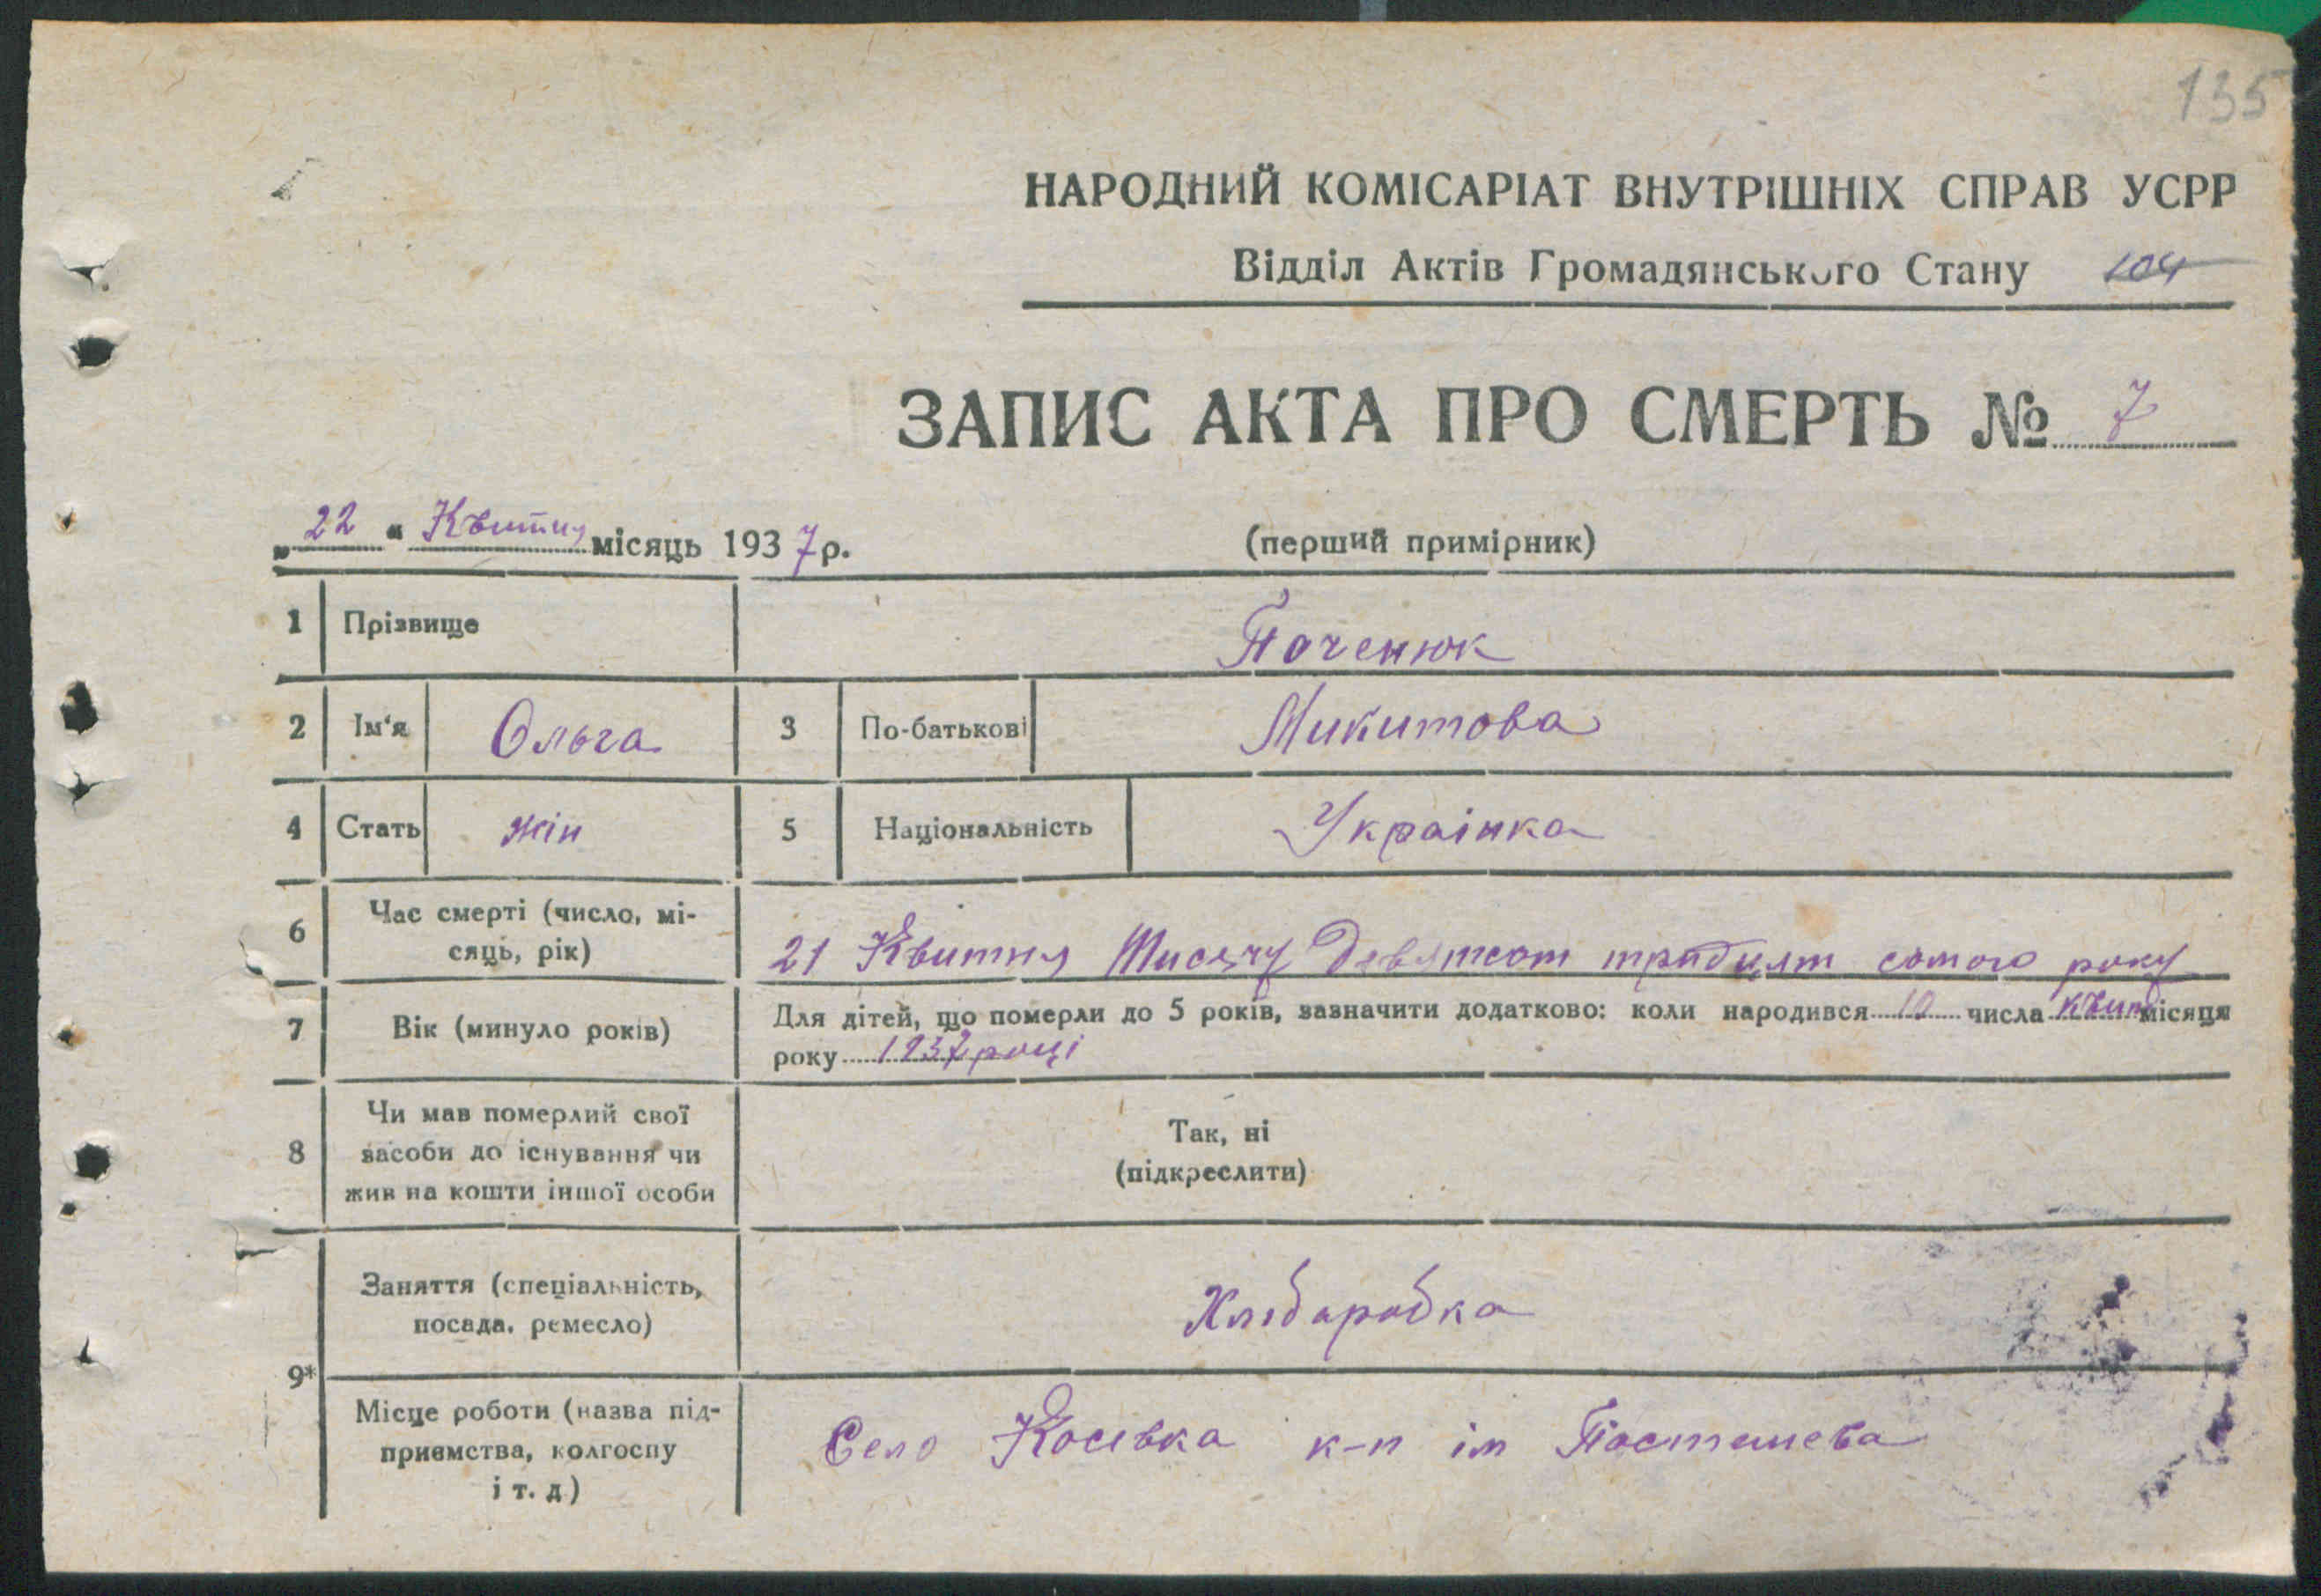 135
НАРОДНИЙ КОМІСАРІАТ ВНУТРІШНІХ СПРАВ УСРР
Відділ Актів Громадянського Стану 104
ЗАПИС АКТА ПРО СМЕРТЬ № 7
„22“ Квитня місяць 1937 р.
(перший примірник)
1 Прізвище Паченюк
2 Ім'я Ольга 3 По-батькові Микитова
4 Стать жін 5 Національність Українка
6 Час смерті (число, мі-
сяць, рік) 21 Квитня Тисячу девятсот традцят семого року
7 Вік (минуло років) Для дітей, що померли до 5 років, зазначити додатково: коли народився 10 числа квит місяця
року 1937 році
8 Чи мав померлий свої
засоби до існування чи
жив на кошти іншої особи
Так, ні
(підкреслити)
9* Заняття (спеціальність,
посада, ремесло) Хлібаробка
Місце роботи (назва під-
приємства, колгоспу
і т. д) Село Косівка к-п ім Постишева